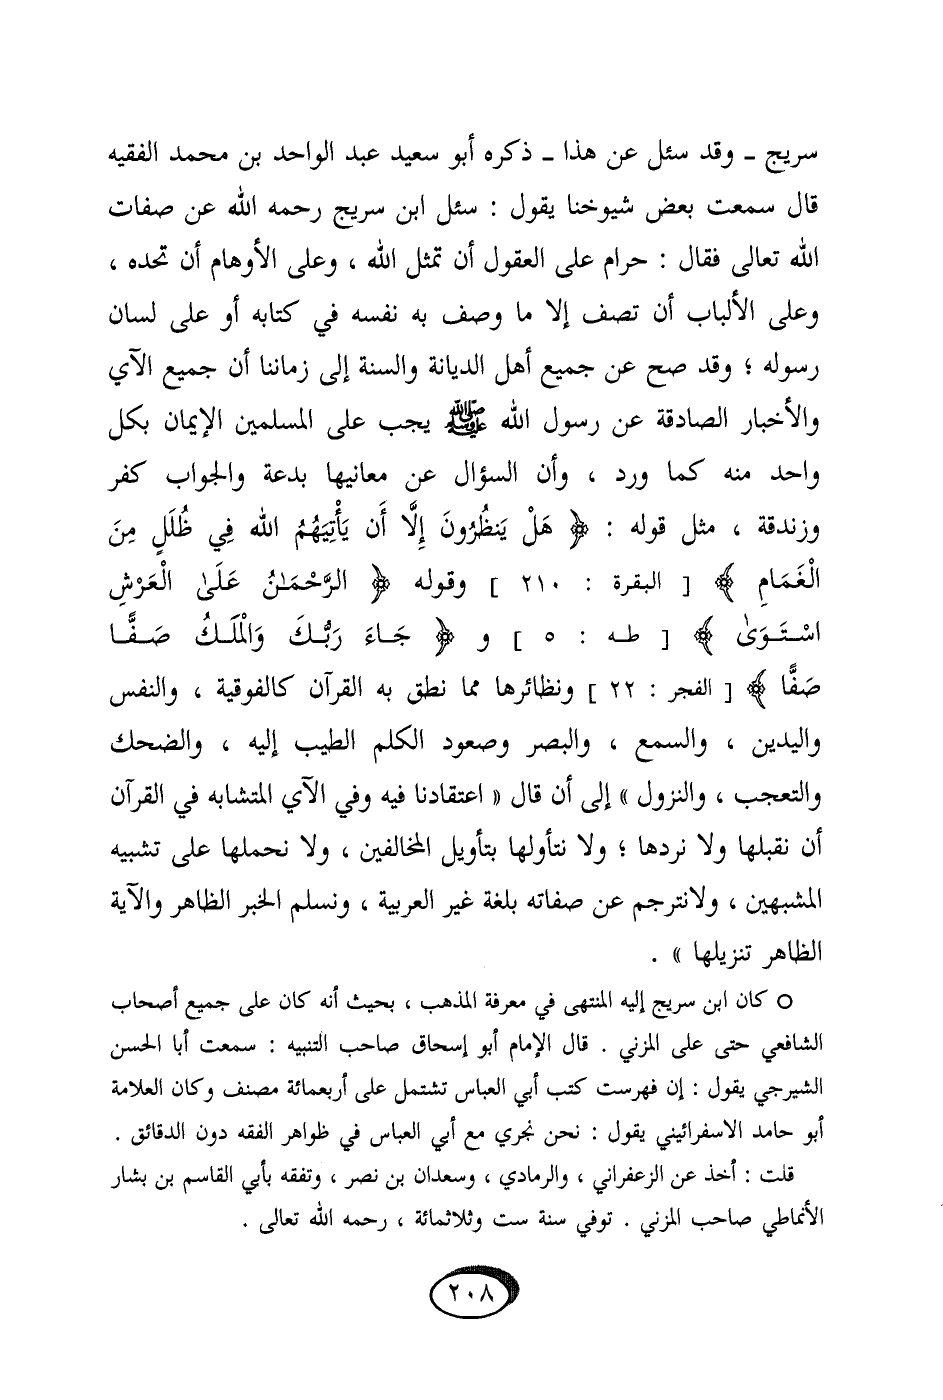 سريج ـ وقد سئل عن هذا ـ ذكره أبو سعيد عبد الواحد بن محمد الفقيه
قال سمعت بعض شيوخنا يقول : سئل ابن سريج رحمه الله عن صفات
الله تعالى فقال : حرام على العقول أن تمثل الله ، وعلى الأوهام أن تحده ،
وعلى الألباب أن تصف إلا ما وصف به نفسه في كتابه أو على لسان
رسوله ؛ وقد صح عن جميع أهل الديانة والسنة إلى زماننا أن جميع الآي
والأخبار الصادقة عن رسول الله ﷺ يجب على المسلمين الإيمان بكل
واحد منه كما ورد ، وأن السؤال عن معانيها بدعة والجواب كفر
وزندقة ، مثل قوله : ﴿ هَلْ يَنظُرُونَ إِلَّا أَن يَأْتِيَهُمُ الله فِي ظُلَلٍ مِنَ
الْغَمَامِ ﴾ [ البقرة : ٢١٠ ] وقوله ﴿ الرَّحْمَـٰنُ عَلَىٰ الْعَرْشِ
اسْـتَـوَىٰ ﴾ [ طـه : ٥ ] و ﴿ جَـاءَ رَبُّـكَ وَالْمَلَـكُ صَـفًّـا
صَفًّا ﴾ [ الفجر : ٢٢ ] ونظائرها مما نطق به القرآن كالفوقية ، والنفس
واليدين ، والسمع ، والبصر وصعود الكلم الطيب إليه ، والضحك
والتعجب ، والنزول » إلى أن قال « اعتقادنا فيه وفي الآي المتشابه في القرآن
أن نقبلها ولا نردها ؛ ولا نتأولها بتأويل المخالفين ، ولا نحملها على تشبيه
المشبهين ، ولانترجم عن صفاته بلغة غير العربية ، ونسلم الخبر الظاهر والآية
الظاهر تنزيلها » .
○ كان ابن سريج إليه المنتهى في معرفة المذهب ، بحيث أنه كان على جميع أصحاب
الشافعي حتى على المزني . قال الإمام أبو إسحاق صاحب التنبيه : سمعت أبا الحسن
الشيرجي يقول : إن فهرست كتب أبي العباس تشتمل على أربعمائة مصنف وكان العلامة
أبو حامد الاسفرائيني يقول : نحن نجري مع أبي العباس في ظواهر الفقه دون الدقائق .
قلت : أخذ عن الزعفراني ، والرمادي ، وسعدان بن نصر ، وتفقه بأبي القاسم بن بشار
الأنماطي صاحب المزني . توفي سنة ست وثلاثمائة ، رحمه الله تعالى .
٢٠٨